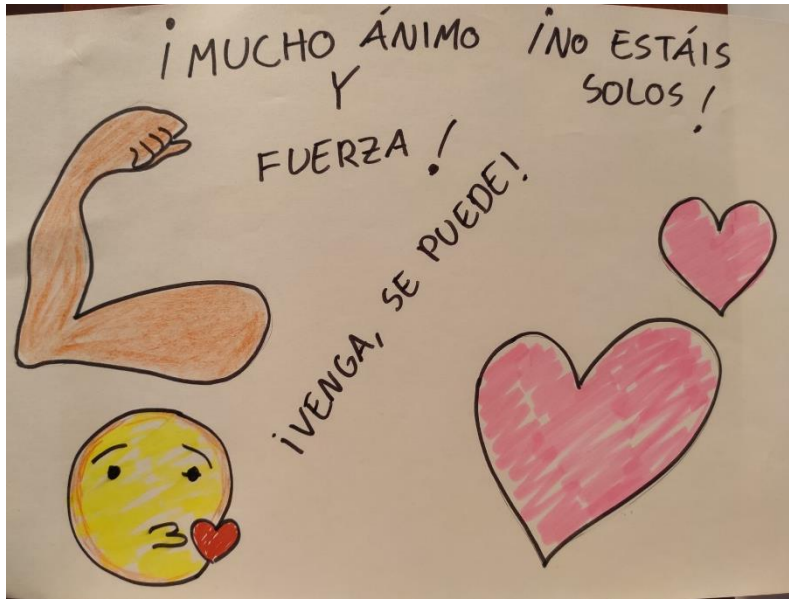 ¡MUCHO ÁNIMO
Y
FUERZA!
¡NO ESTÁIS
SOLOS!
¡VENGA, SE PUEDE!